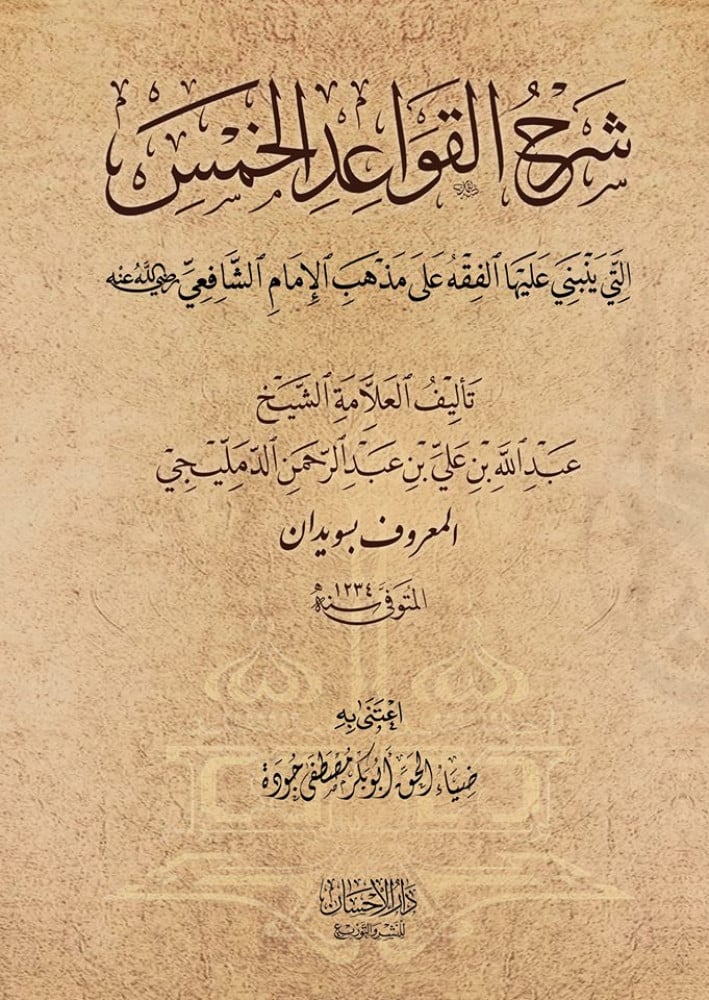 شَرْحُ القَوَاعِدِ الخَمْسِ
الَّتِي يَنْبَنِي عَلَيْهَا الفِقْهُ عَلَى مَذْهَبِ الإِمَامِ الشَّافِعِيِّ رضي الله عنه
تَأْلِيفُ العَلَّامَةِ الشَّيْخِ
عَبْدِ اللَّهِ بْنِ عَلِيِّ بْنِ عَبْدِ الرَّحْمَنِ الدَّمْلِيجِيِّ
المعروف بسويدان
المُتَوَفَّى سنة ١٢٣٤ هـ
اعْتَنَى بِهِ
ضِيَاءُ الحَقِّ أَبُو بَكْرِ مُصْطَفَى جُودَة
دَارُ الإِحْسَانِ
للنشر والتوزيع